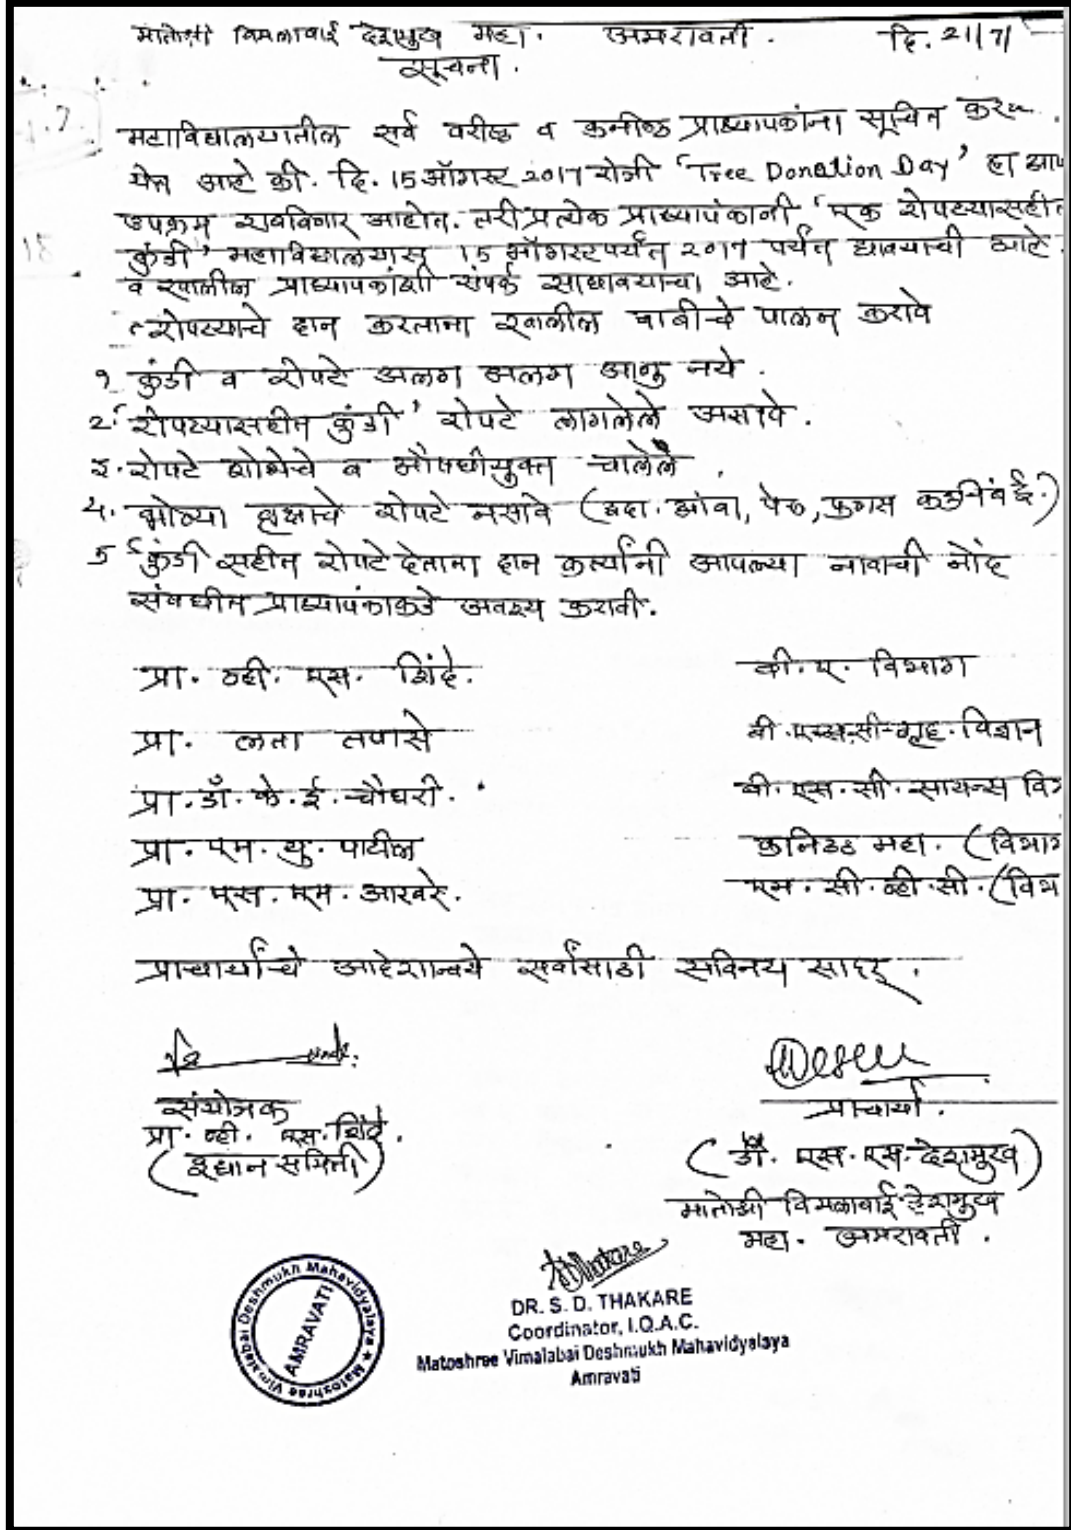 मातोश्री विमलाबाई देशमुख महा. अमरावती. दि. 21/7/
सूचना.
महाविद्यालयातील सर्व वरीष्ठ व कनीष्ठ प्राध्यापकांना सूचित कर
येत आहे की. दि. 15 ऑगस्ट 2017 रोजी 'Tree Donation Day' हा आप
उपक्रम राबविणार आहोत. तरी प्रत्येक प्राध्यापंकानी 'एक रोपट्यासहीत
कुंडी' महाविद्यालयास 15 ऑगस्टपर्यंत 2017 पर्यंत द्यावयाची आहे.
व खालील प्राध्यापकांशी संपर्क साधावयाचा आहे.
रोपट्याचे दान करताना खालील बाबीचे पालन करावे
१. कुंडी व रोपटे अलग अलग आणु नये.
2. 'रोपट्यासहीत कुंडी' रोपटे लागलेले असावे.
३. रोपटे शोभेचे व औषधीयुक्त चालेले.
4. मोठ्या वृक्षाचे रोपटे नसावे (उदा. आंबा, पेरू, फणस कडुनिंब ई.)
5 'कुंडी सहीत रोपटे देताना दान कर्त्यांनी आपल्या नावाची नोंद
संबधीत प्राध्यापंकाकडे अवश्य करावी.
प्रा. व्ही. एस. शिंदे. बी. ए. विभाग
प्रा. लता तपासे बी. एस्स.सी-गृह. विज्ञान
प्रा. डॉ. के. ई. चौधरी. बी. एस. सी. सायन्स वि
प्रा. एम. यु. पाटील कनिष्ठ महा. (विभाग
प्रा. एस. एम. आखरे. एम. सी. व्ही. सी. (विभ
प्राचार्यांचे आदेशान्वये सर्वांसाठी सविनय सादर.
संयोजक प्राचार्या.
प्रा. व्ही. एस. शिंदे. (डॉ. एस. एस. देशमुख)
(उद्यान समिती) मातोश्री विमलाबाई देशमुख
महा. अमरावती.
Matoshree Vimalabai Deshmukh Mahavidyalaya
AMRAVATI
DR. S. D. THAKARE
Coordinator, I.Q.A.C.
Matoshree Vimalabai Deshmukh Mahavidyalaya
Amravati